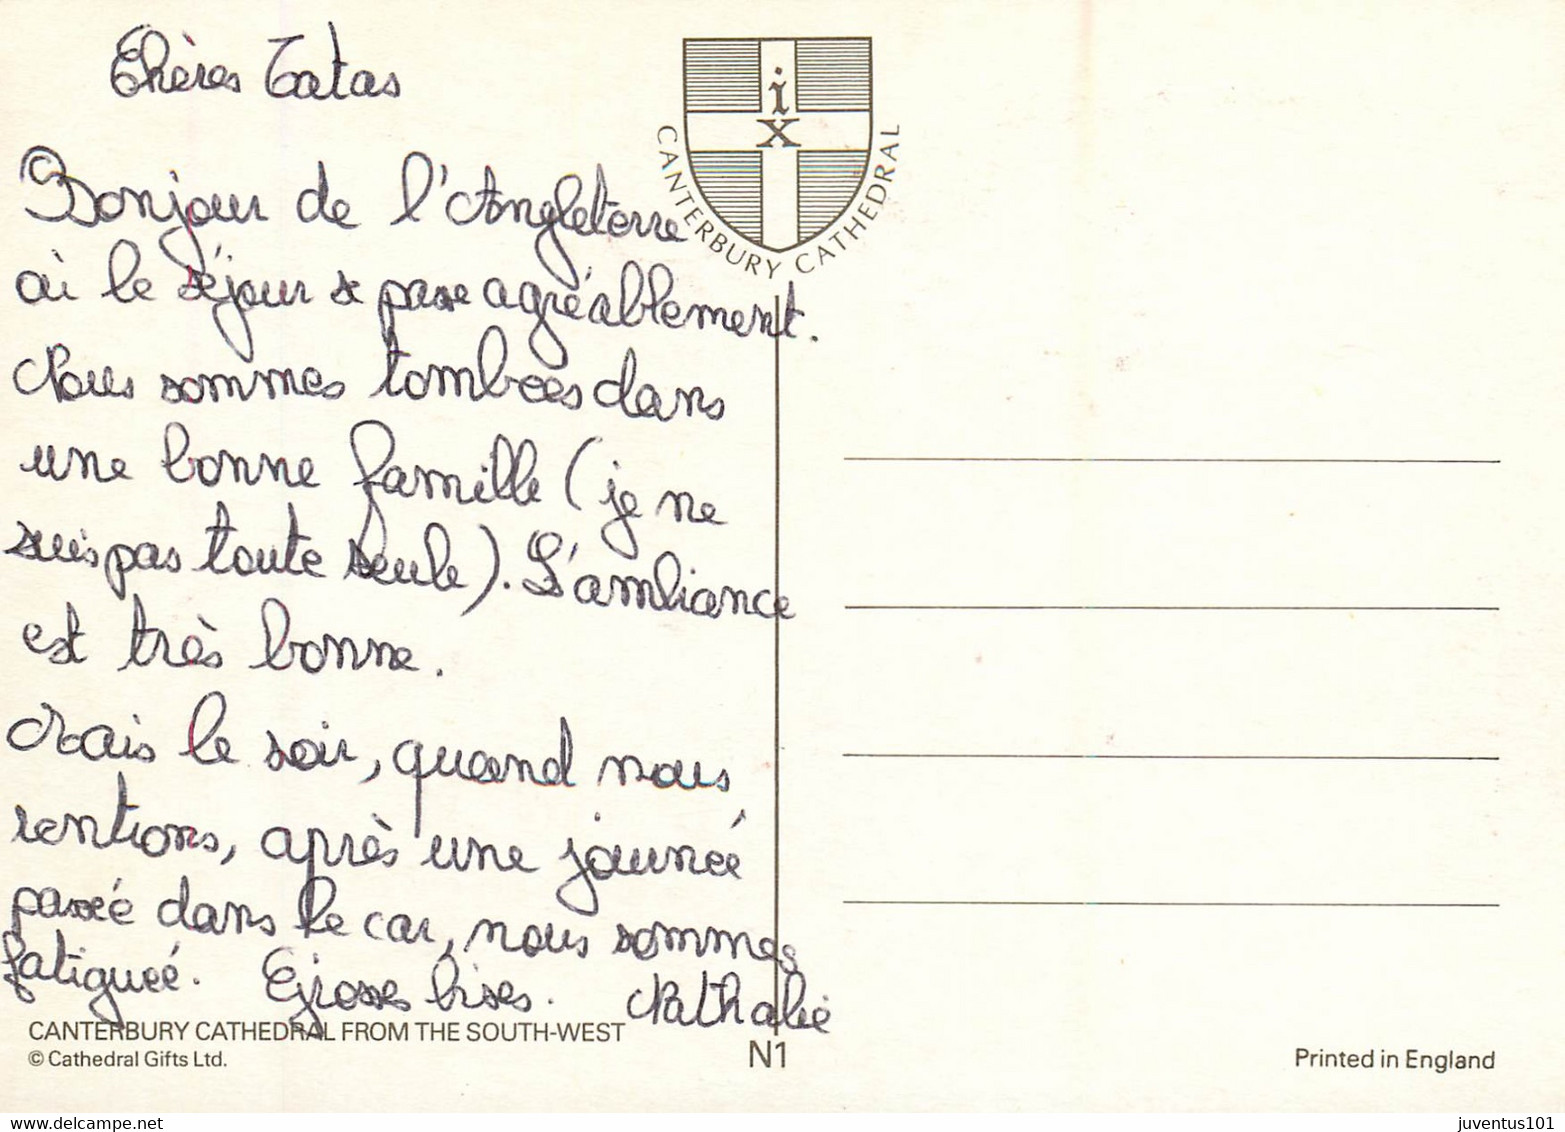 Chères Tatas
Bonjour de l'Angleterre
où le séjour se passe agréablement.
Nous sommes tombées dans
une bonne famille (je ne
suis pas toute seule). L'ambiance
est très bonne.
Mais le soir, quand nous
rentrons, après une journée
passée dans le car, nous sommes
fatiguée. Grosses bises. Nathalie
i
x
CANTERBURY CATHEDRAL
CANTERBURY CATHEDRAL FROM THE SOUTH-WEST
© Cathedral Gifts Ltd.
N1
Printed in England
www.delcampe.net
juventus101